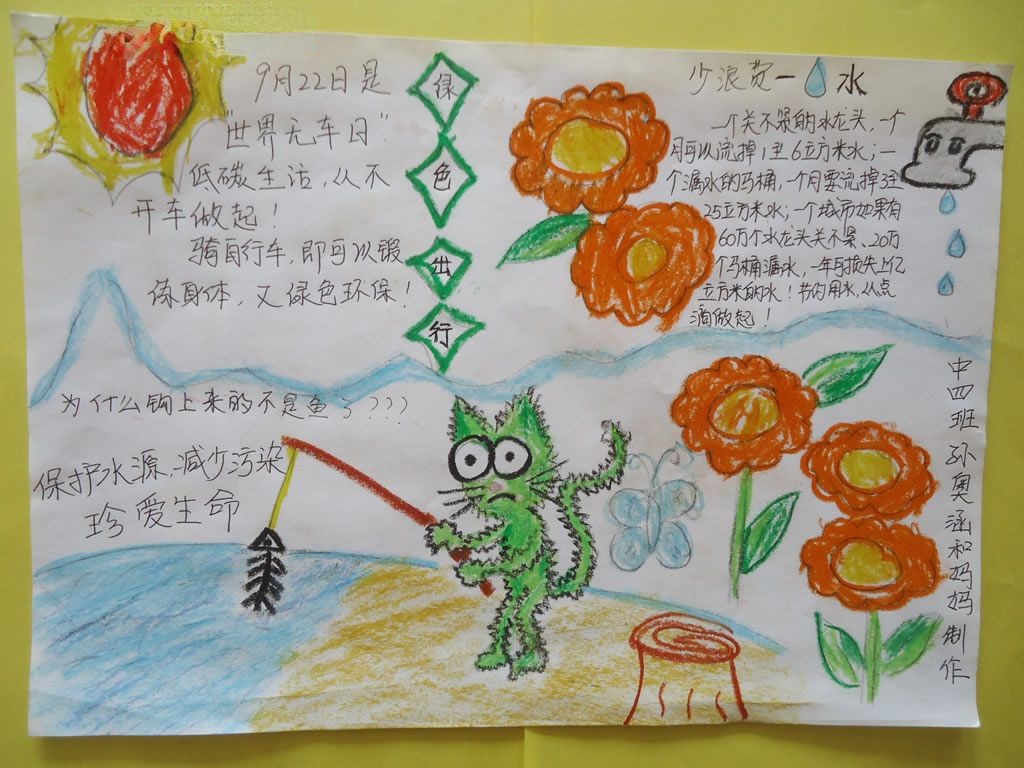 9月22日是
"世界无车日"
低碳生活，从不
开车做起！
骑自行车，即可以锻
练身体，又绿色环保！
绿
色
出
行
少浪费一水
一个关不紧的水龙头，一个
月可以流掉1至6立方米水；一
个漏水的马桶，一个月要流掉3至
25立方米水；一个城市如果有
60万个水龙头关不紧、20万
个马桶漏水，一年可损失上亿
立方米的水！节约用水，从点
滴做起！
为什么钩上来的不是鱼了？？？
保护水源，减少污染
珍爱生命
中四班孙奥涵和妈妈制作